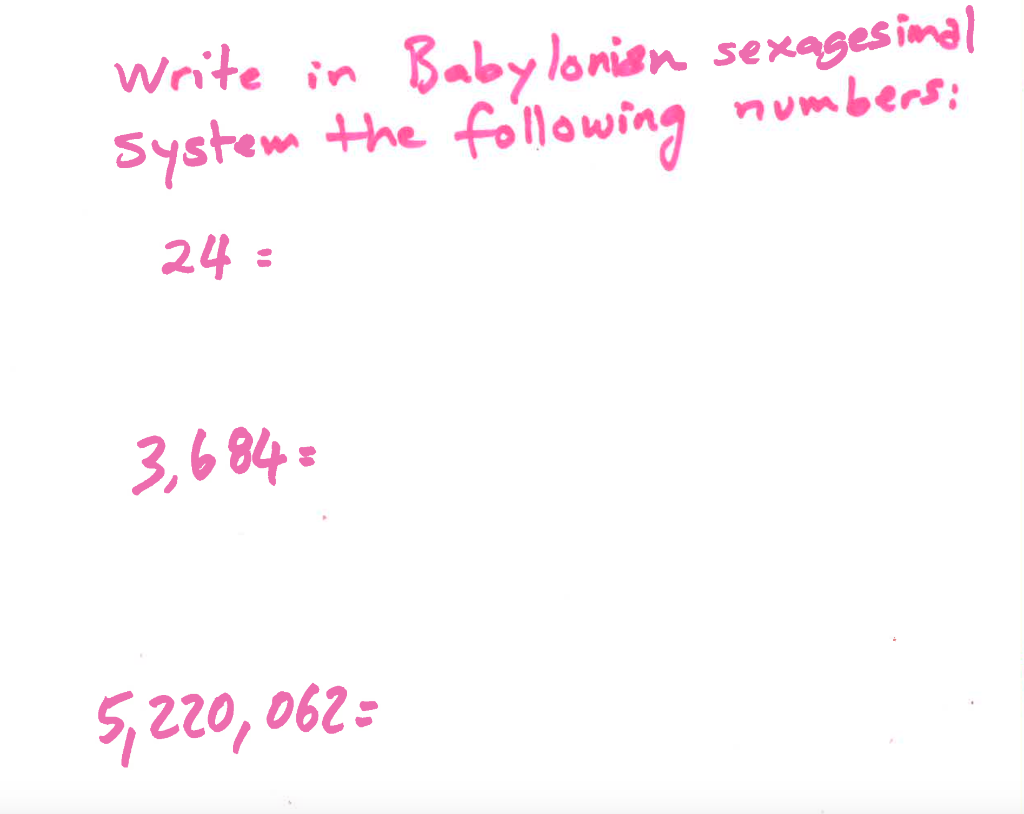 Write in Babylonian sexagesimal
system the following numbers:
24 =
3,684=
5,220,062=